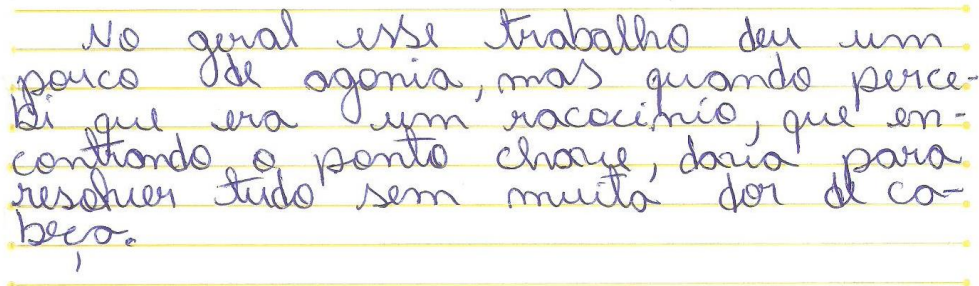 No geral esse trabalho deu um
pouco de agonia, mas quando perce-
bi que era um racocinio, que en-
contrando o ponto chave, daria para
resolver tudo sem muita dor de ca-
beça.